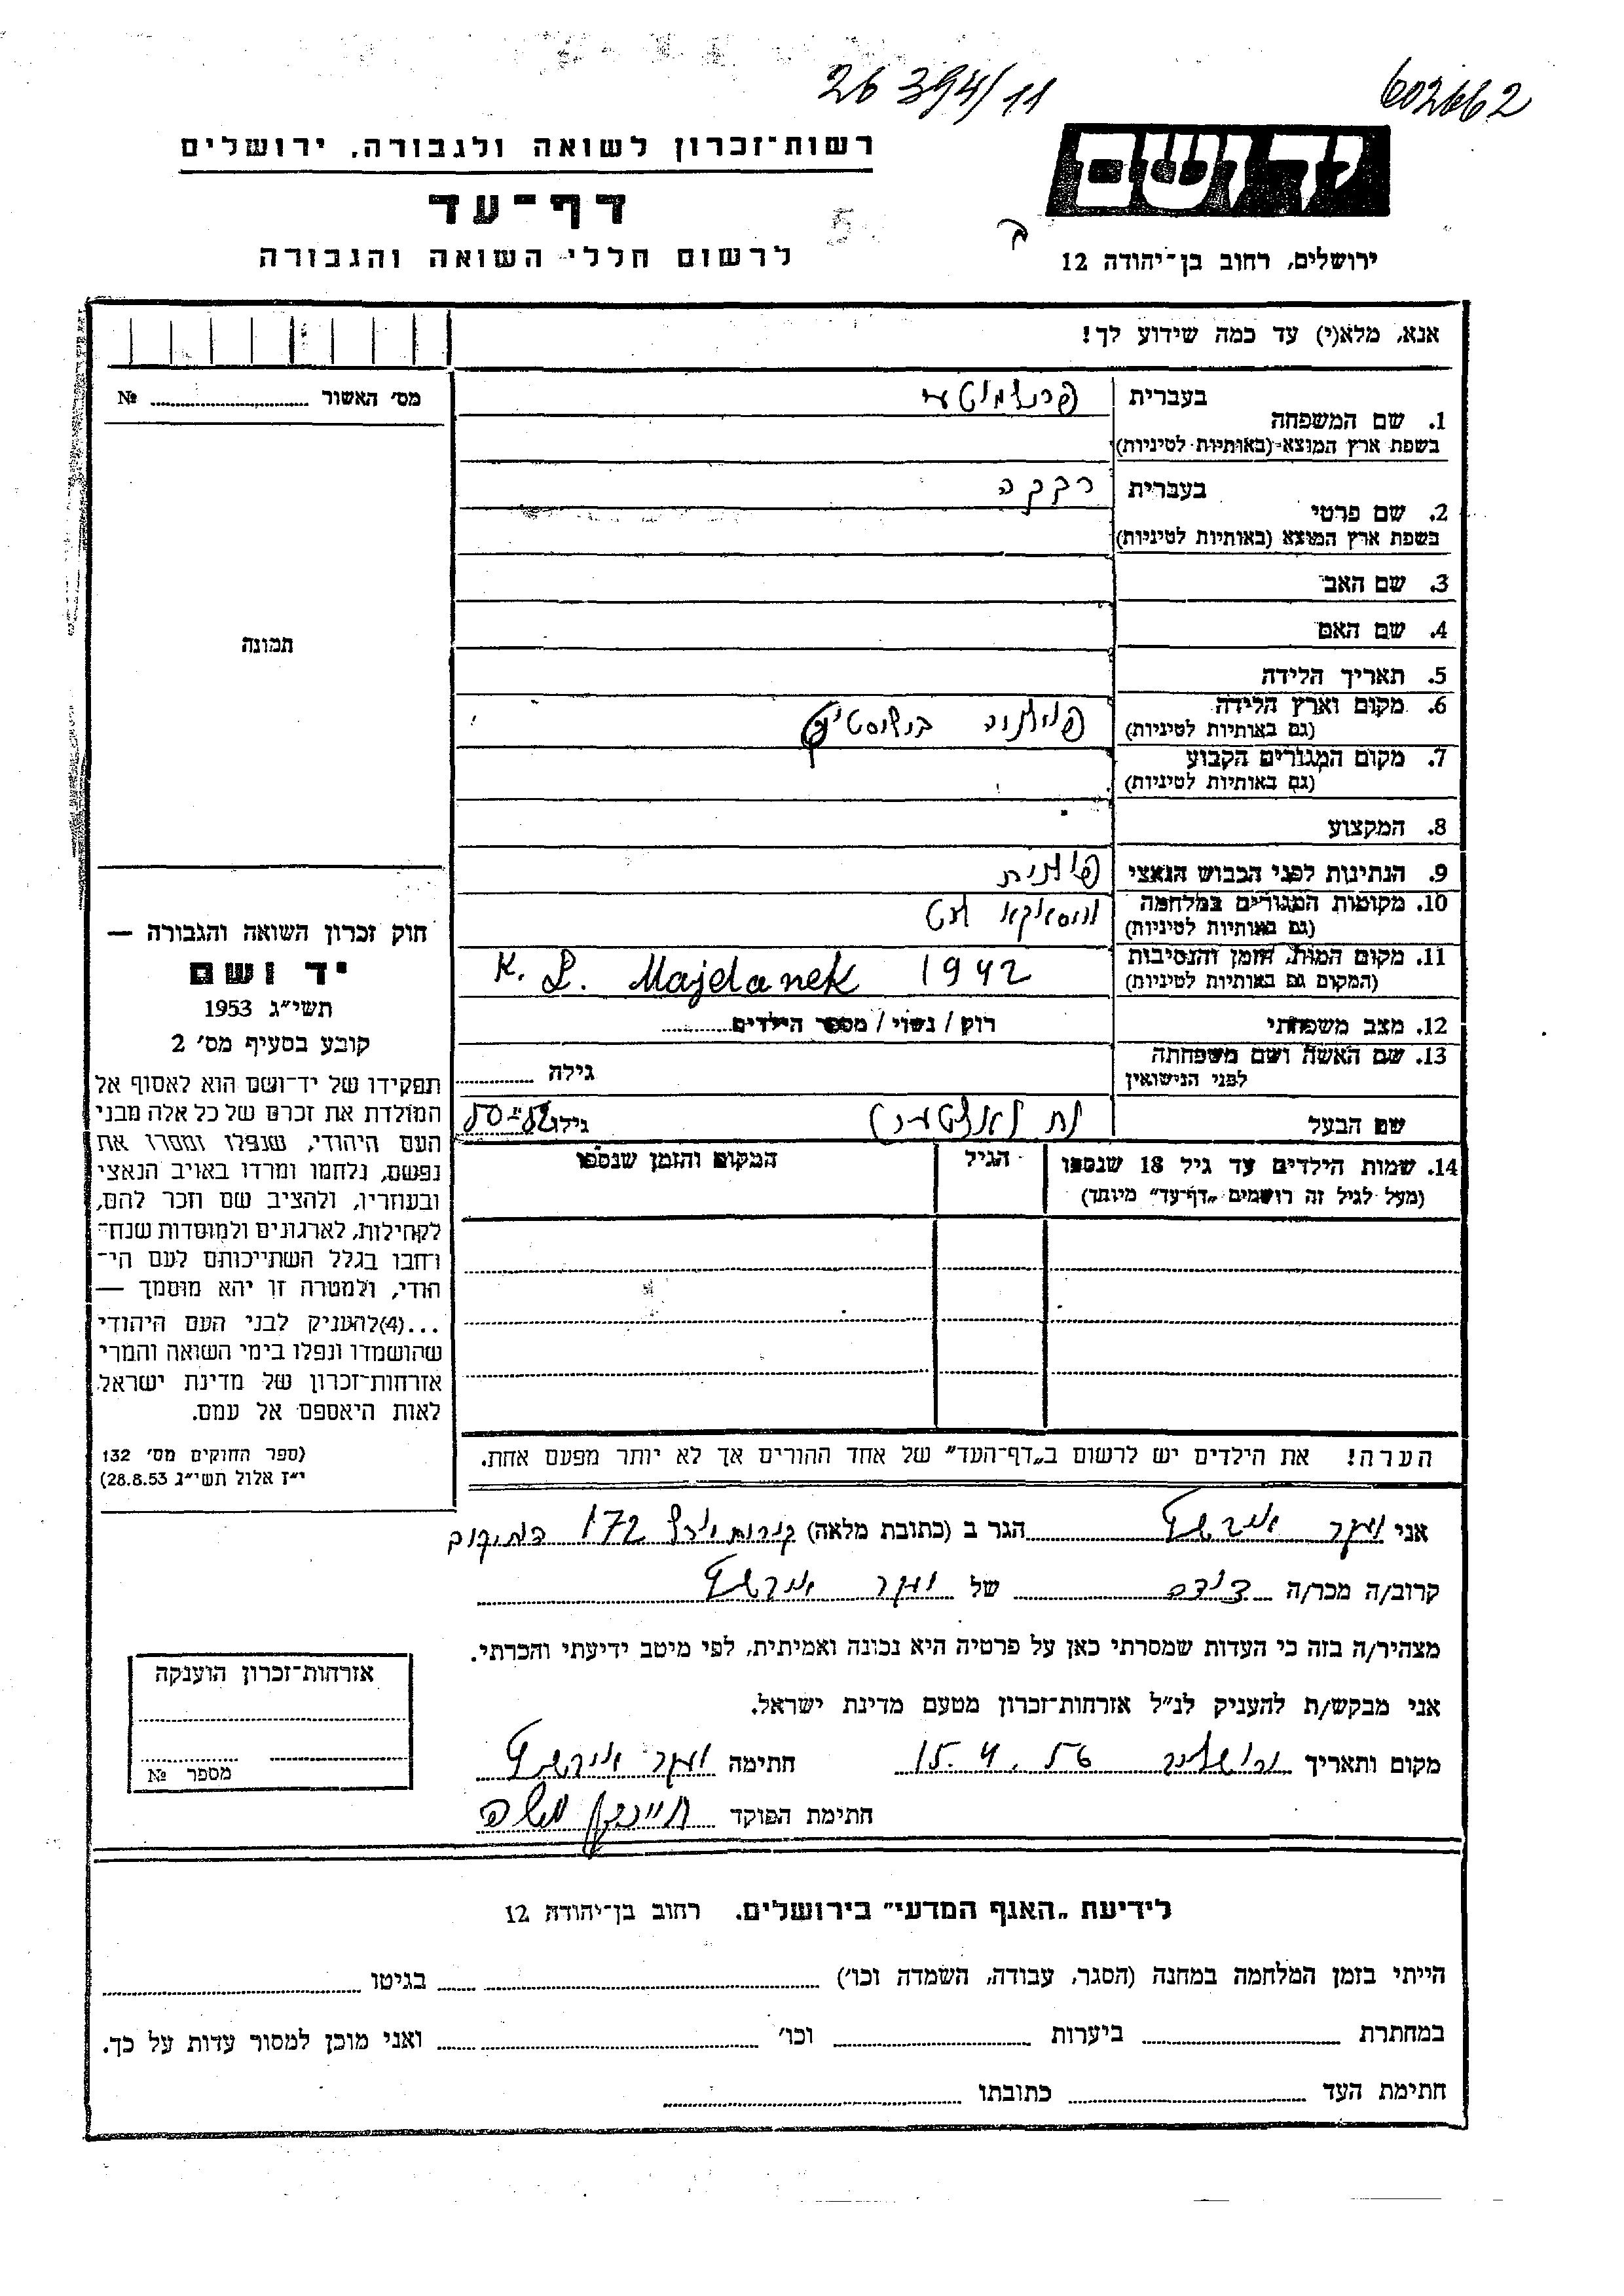 26 394/11
602662
יד ושם
רשות־זכרון לשואה ולגבורה, ירושלים
דף־עד
לרשום חללי השואה והגבורה
ירושלים, רחוב בן־יהודה 12
אנא, מלא(י) עד כמה שידוע לך!
מס׳ האשור № 
בעברית
1. שם המשפחה
בשפת ארץ המוצא (באותיות לטיניות)
בעברית רבקה
2. שם פרטי
בשפת ארץ המוצא (באותיות לטיניות)
3. שם האב
4. שם האם
5. תאריך הלידה
6. מקום וארץ הלידה
(גם באותיות לטיניות)
7. מקום המגורים הקבוע
(גם באותיות לטיניות)
8. המקצוע
9. הנתינות לפני הכבוש הנאצי פולנית
10. מקומות המגורים במלחמה
(גם באותיות לטיניות)
11. מקום המות, הזמן והנסיבות K. L. Majdanek 1942
(המקום גם באותיות לטיניות)
12. מצב משפחתי רוק / נשוי / מספר הילדים
13. שם האשה ושם משפחתה
לפני הנישואין גילה
שם הבעל גילו
14. שמות הילדים עד גיל 18 שנספו הגיל המקום והזמן שנספו
(מעל לגיל זה רושמים „דף־עד״ מיוחד)
הערה! את הילדים יש לרשום ב„דף־העד״ של אחד ההורים אך לא יותר מפעם אחת.
תמונה
חוק זכרון השואה והגבורה —
יד ושם
תשי״ג 1953
קובע בסעיף מס׳ 2
תפקידו של יד־ושם הוא לאסוף אל
המולדת את זכרם של כל אלה מבני
העם היהודי, שנפלו ומסרו את
נפשם, נלחמו ומרדו באויב הנאצי
ובעוזריו, ולהציב שם וזכר להם,
לקהילות, לארגונים ולמוסדות שנח־
רחבו בגלל השתייכותם לעם הי־
הודי, ולמטרה זו יהא מוסמך —
...(4)להעניק לבני העם היהודי
שהושמדו ונפלו בימי השואה והמרי
אזרחות־זכרון של מדינת ישראל
לאות היאספם אל עמם.
(ספר החוקים מס׳ 132
י״ז אלול תשי״ג 28.8.53)
אני הגר ב (כתובת מלאה) 172
קרוב/ה מכר/ה של
מצהיר/ה בזה כי העדות שמסרתי כאן על פרטיה היא נכונה ואמיתית, לפי מיטב ידיעתי והכרתי.
אני מבקש/ת להעניק לנ״ל אזרחות־זכרון מטעם מדינת ישראל.
מקום ותאריך 15.4.56 חתימה
חתימת הפוקד
אזרחות־זכרון הוענקה
מספר №
לידיעת „האגף המדעי״ בירושלים. רחוב בן־יהודה 12
הייתי בזמן המלחמה במחנה (הסגר, עבודה, השמדה וכו׳) בגיטו
במחתרת ביערות וכו׳ ואני מוכן למסור עדות על כך.
חתימת העד כתובתו